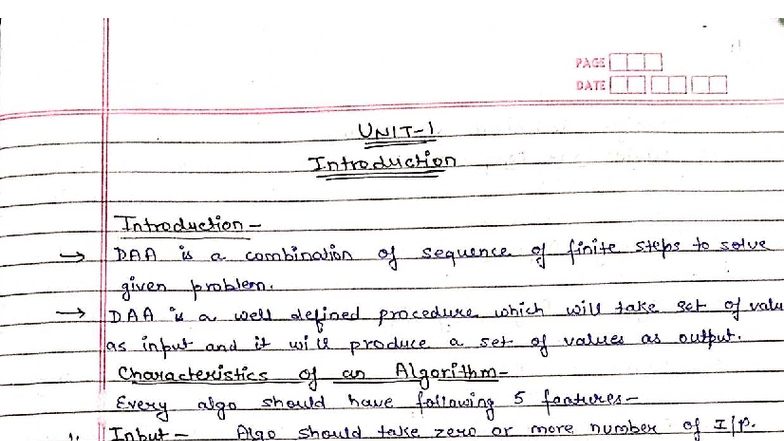 PAGE
DATE
UNIT-1
Introduction
Introduction -
→ DAA is a combination of sequence of finite steps to solve
given problem.
→ DAA is a well defined procedure which will take set of valu
as input and it will produce a set of values as output.
Characteristics of an Algorithm-
Every algo should have following 5 features-
1. Input - Algo should take zero or more number of I/p.